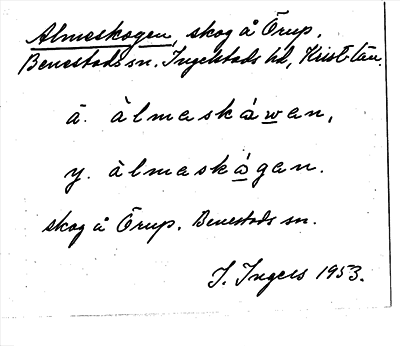 Almeskogen, skog å Örup.
Benestads sn. Ingelstads hd, Krist. län.
ä. àlmaskáwan,
y. àlmaskágan.
skog å Örup. Benestads sn.
I. Ingers 1953.